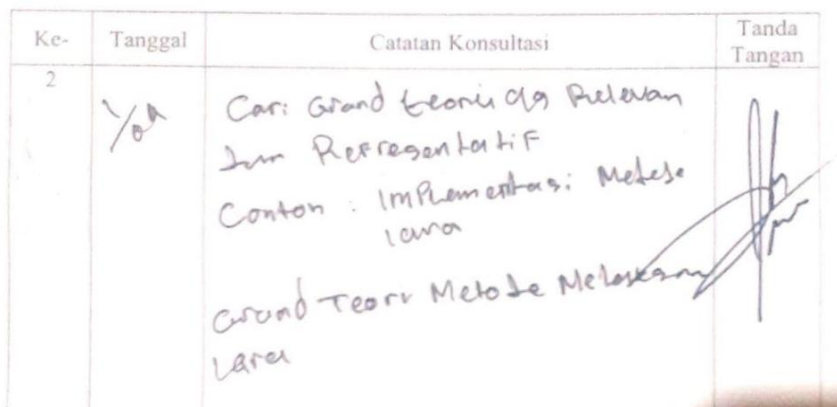 Ke-
Tanggal
Catatan Konsultasi
Tanda
Tangan
2
Cari Grand teoriu yg Relevan
dan Refresentatif
Contoh : Implementasi Metode
Grand Teori Metode